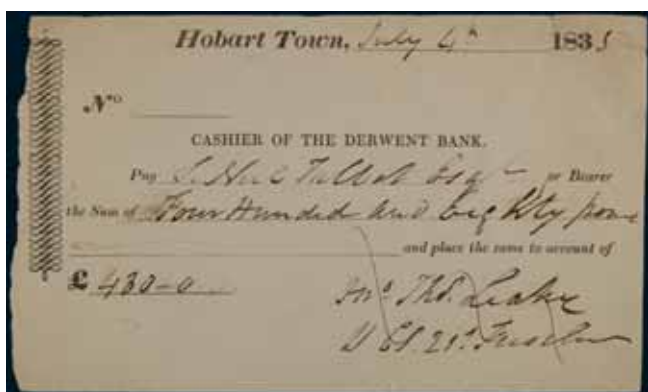 Hobart Town, July 4th 1835
No.
CASHIER OF THE DERWENT BANK.
Pay Talbot Esqr or Bearer
the Sum of Four Hundred and Eighty poun
and place the same to account of
£ 480-0
Jno. Thos. Leake
21st